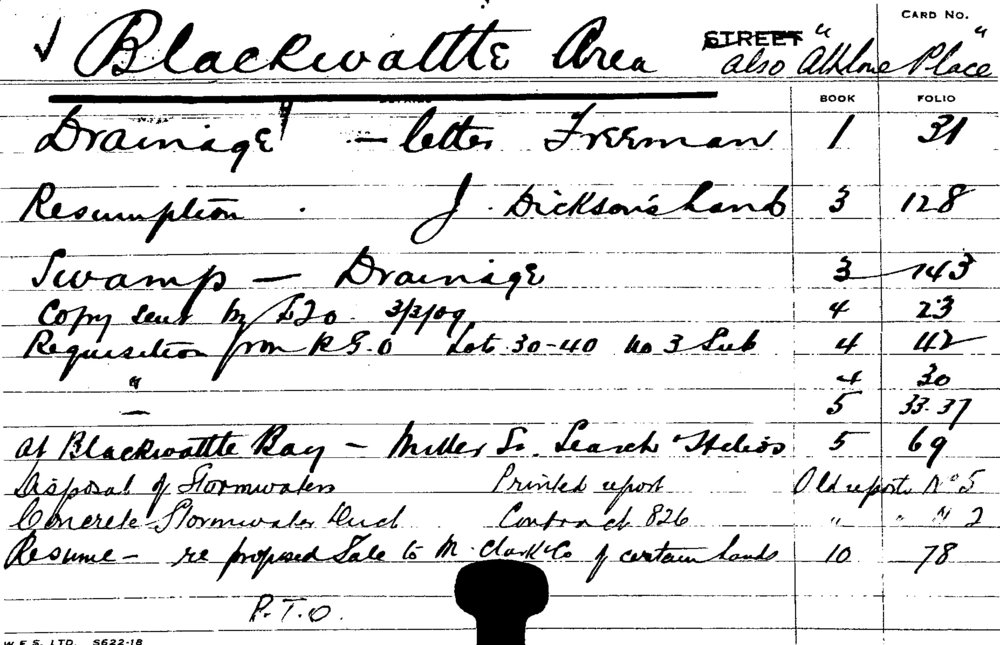 ✓ Blackwattle Area STREET also "Athlone Place"
CARD No.
BOOK FOLIO
Drainage — letter Freeman 1 31
Resumption . J. Dickson's Land 3 128
Swamp — Drainage 3 143
Copy sent by 3/3/09 4 23
Requisition from R G.O Lots 30-40 No 3 Sub 4 42
" 4 30
— 5 33.37
at Blackwattle Bay — Miller St. Search 5 69
Disposal of Stormwaters Printed report Old reports No 5
Concrete Stormwater Duct Contract 826 " " No 2
Resume — re proposed Sale to M. Clark & Co of certain lands 10 78
P.T.O.
W.E.S. LTD. S622-18